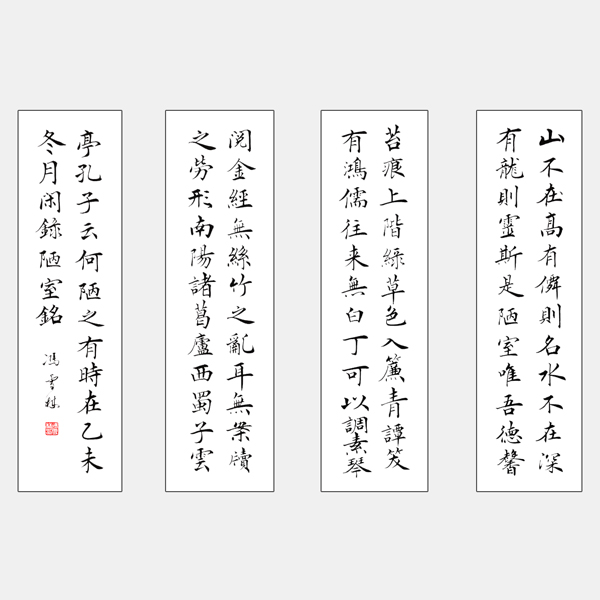 山不在高有僊則名水不在深
有龍則靈斯是陋室唯吾德馨
苔痕上階緑草色入簾青譚笑
有鴻儒往来無白丁可以調素琴
閲金經無絲竹之亂耳無案牘
之勞形南陽諸葛廬西蜀子雲
亭孔子云何陋之有時在乙未
冬月闲錄陋室銘
冯雪